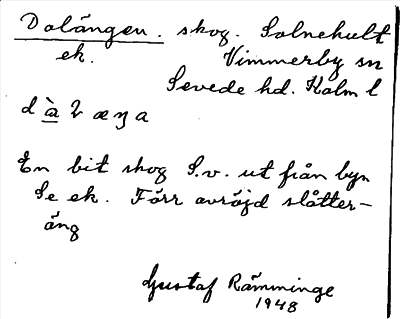 Dalängen. skog. Solnehult
ek. Vimmerby sn
Sevede hd. Kalm l
d à l æŋa
En bit skog S.v. ut från byn
Se ek. Förr avröjd slåtter-
äng
Gustaf Rämminge
1948